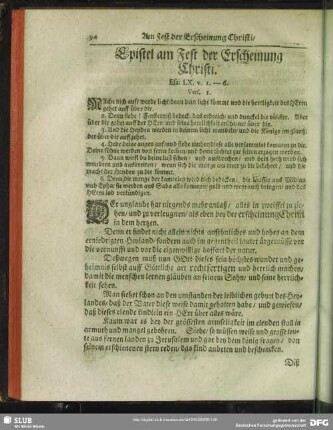 94 Am Fest der Erscheinung Christi/
Epistel am Fest der Erscheinung
Christi.
Esai: LX. v. 1. — 6.
Vers. 1.
MAche dich auff/ werde licht/ denn dein licht kommt/ und die herrligkeit des HErrn
gehet auff über dir.
2. Denn siehe/ Finsterniß bedeckt das erdreich/ und dunckel die völcker. Aber
über dir gehet auff der HErr/ und seine herrligkeit erscheinet über dir.
3. Und die Heyden werden in deinem licht wandeln/ und die Könige im glantz/
der über dir auffgehet.
4. Hebe deine augen auff/ und siehe umher/ diese alle versamlet kommen zu dir.
Deine söhne werden von ferne kommen/ und deine töchter zur seiten erzogen werden.
5. Dann wirst du deine lust sehen/ und ausbrechen/ und dein hertz wird sich
wundern und ausbreiten/ wenn sich die menge am meer zu dir bekehret/ und die
macht der Heyden zu dir kommt.
6. Denn die menge der cameelen wird dich bedecken/ die läuffer aus Midian
und Epha: sie werden aus Saba alle kommen/ gold und weyrauch bringen/ und des
HErrn lob verkündigen.
DEr unglaube hat nirgends mehr anlaß/ alles in zweiffel zu zie-
hen/ und zu verleugnen/ als eben bey der erscheinung Christi
in dem hertzen.
Denn er findet nicht allein nichts ansehnliches und hohes an dem
erniedrigten Heylande/ sondern auch im gegentheil lauter ärgernüsse vor
die vernunfft und vor die eigenwillige boßheit der natur.
Deßwegen muß nun GOtt dieses sein höchstes wunder und ge-
heimniß selbst auff Göttliche art rechtfertigen und herrlich machen/
damit die menschen lernen gläuben an seinem Sohne/ und seine herrlich-
keit sehen.
Man siehet schon an den umständen der leiblichen geburt des Hey-
landes/ daß der Vater diese weise damit gehalten habe/ und gewiesen/
daß dieses elende kindlein ein HErr über alles wäre.
Kaum war es bey der grössesten armseligkeit im elenden stall in
armuth und mangel gebohren. Siehe/ so müssen weise und grosse leu-
te aus fernen landen zu Jerusalem und gar bey dem könig fragen/ von
seinem erschienenen stern reden/ das kind anbeten und beschencken.
Diß
SLUB
Wir führen Wissen.
http://digital.slub-dresden.de/
gefördert von der
DFG
Deutschen Forschungsgemeinschaft